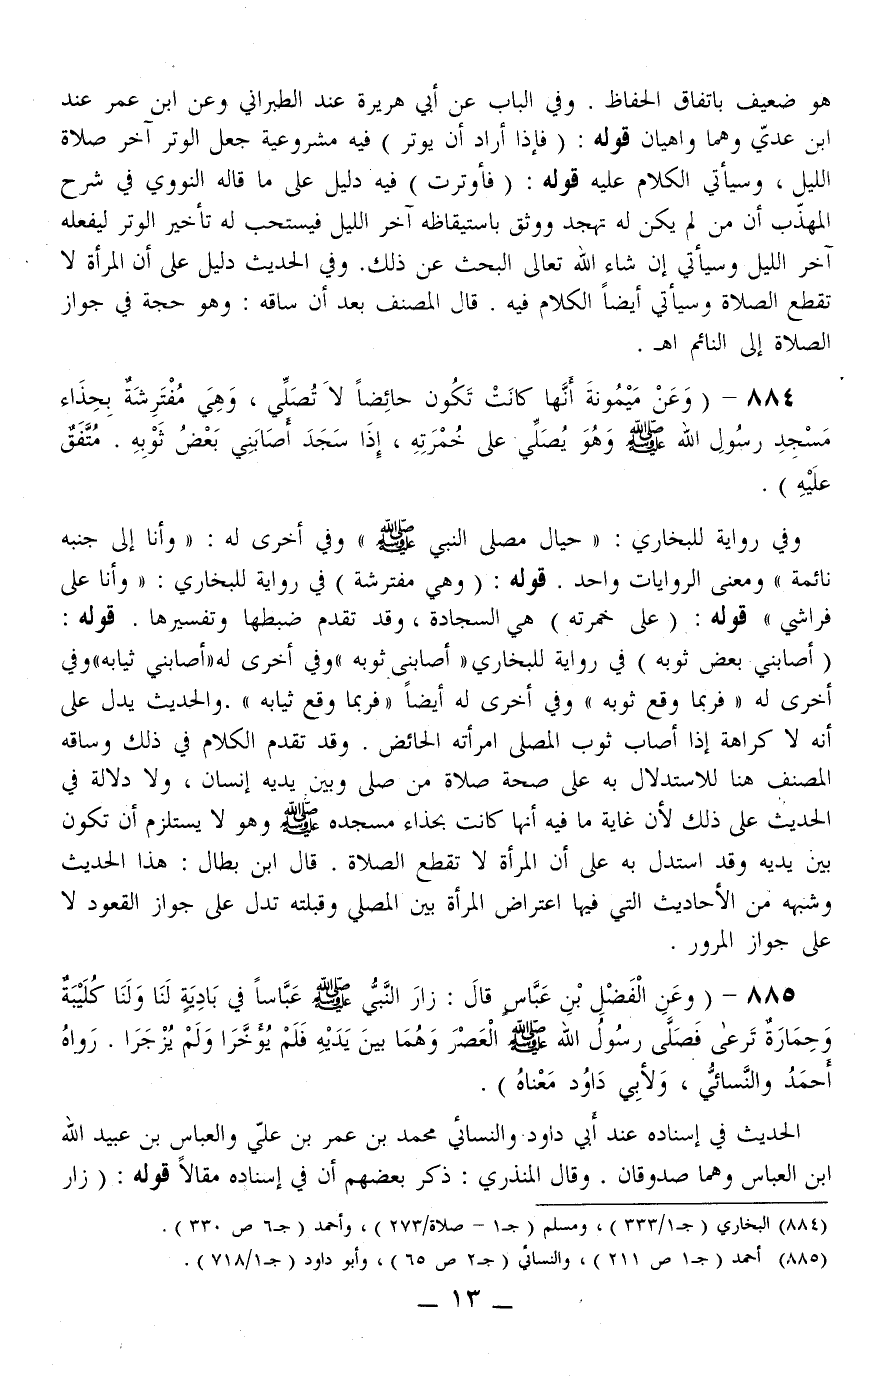 هو ضعيف باتفاق الحفاظ . وفي الباب عن أبي هريرة عند الطبراني وعن ابن عمر عند
ابن عديّ وهما واهيان قوله : ( فإذا أراد أن يوتر ) فيه مشروعية جعل الوتر آخر صلاة
الليل ، وسيأتي الكلام عليه قوله : ( فأوترت ) فيه دليل على ما قاله النووي في شرح
المهذّب أن من لم يكن له تهجد ووثق باستيقاظه آخر الليل فيستحب له تأخير الوتر ليفعله
آخر الليل وسيأتي إن شاء الله تعالى البحث عن ذلك. وفي الحديث دليل على أن المرأة لا
تقطع الصلاة وسيأتي أيضاً الكلام فيه . قال المصنف بعد أن ساقه : وهو حجة في جواز
الصلاة إلى النائم اهـ .
٨٨٤ – ( وَعَنْ مَيْمُونةَ أَنَّها كانَتْ تَكُون حائِضاً لاَ تُصَلِّي ، وَهِيَ مُفْتَرِشَةٌ بِحِذَاء
مَسْجِدِ رسُولِ الله ﷺ وَهُوَ يُصَلِّي على خُمْرَتِهِ ، إِذَا سَجَدَ أَصَابَنِي بَعْضُ ثَوْبِهِ . مُتَّفَقٌ
علَيْهِ ) .
وفي رواية للبخاري : « حيال مصلى النبي ﷺ » وفي أخرى له : « وأنا إلى جنبه
نائمة » ومعنى الروايات واحد . قوله : ( وهي مفترشة ) في رواية للبخاري : « وأنا على
فراشي » قوله : ( على خمرته ) هي السجادة ، وقد تقدم ضبطها وتفسيرها . قوله :
( أصابني بعض ثوبه ) في رواية للبخاري« أصابنى ثوبه »وفي أخرى له«أصابني ثيابه»وفي
أخرى له « فربما وقع ثوبه » وفي أخرى له أيضاً « فربما وقع ثيابه » .والحديث يدل على
أنه لا كراهة إذا أصاب ثوب المصلى امرأته الحائض . وقد تقدم الكلام في ذلك وساقه
المصنف هنا للاستدلال به على صحة صلاة من صلى وبين يديه إنسان ، ولا دلالة في
الحديث على ذلك لأن غاية ما فيه أنها كانت بحذاء مسجده ﷺ وهو لا يستلزم أن تكون
بين يديه وقد استدل به على أن المرأة لا تقطع الصلاة . قال ابن بطال : هذا الحديث
وشبهه من الأحاديث التي فيها اعتراض المرأة بين المصلي وقبلته تدل على جواز القعود لا
على جواز المرور .
٨٨٥ – ( وعَنِ الْفَضْلِ بْنِ عَبَّاسٍ قالَ : زارَ النَّبيُّ ﷺ عَبَّاساً في بَادِيَةٍ لَنَا وَلَنَا كُلَيْبَةٌ
وَحِمَارَةٌ تَرعىٰ فَصَلَّى رسُولُ الله ﷺ الْعَصْرَ وَهُمَا بينَ يَدَيْهِ فَلَمْ يُؤَخَّرَا وَلَمْ يُزْجَرَا . رَواهُ
أَحمَدُ والنَّسائيُّ ، وَلأبي دَاوُد مَعْناهُ ) .
الحديث في إسناده عند أبي داود والنسائي محمد بن عمر بن عليّ والعباس بن عبيد الله
ابن العباس وهما صدوقان . وقال المنذري : ذكر بعضهم أن في إسناده مقالاً قوله : ( زار
(٨٨٤) البخاري ( جـ٣٣٣/١ ) ، ومسلم ( جـ١ – صلاة/٢٧٣ ) ، وأحمد ( جـ٦ ص ٣٣٠ ) .
(٨٨٥) أحمد ( جـ١ ص ٢١١ ) ، والنسائي ( جـ٢ ص ٦٥ ) ، وأبو داود ( جـ٧١٨/١ ) .
– ١٣ –